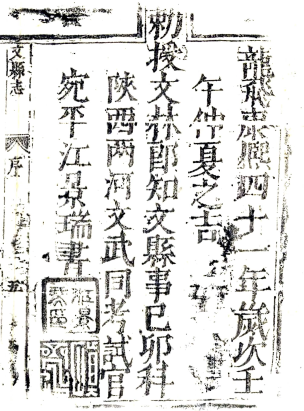 龍飛康熙四十一年歲次壬
午仲夏之吉
勅授文林郎知文縣事己卯科
陝西兩河文武同考試官
宛平江景瑞書
文縣志
序
五